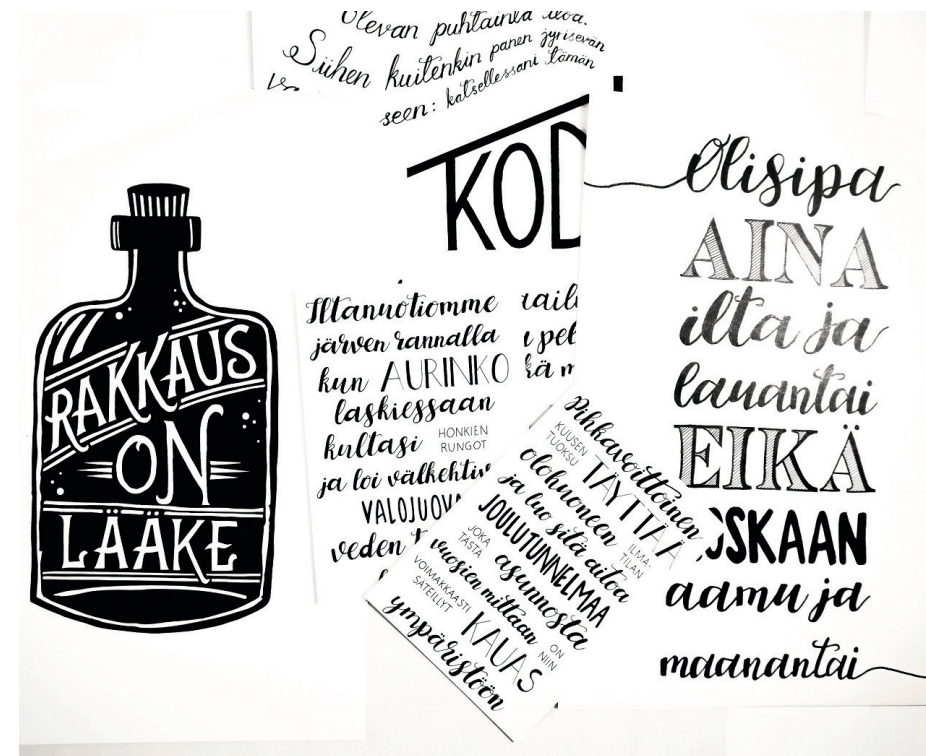 Olevan puhtainta iloa.
Siihen kuitenkin panen jyrisevän
seen: katsellessani tämän
KOD
RAKKAUS
ON
LÄÄKE
Iltanuotiomme
järven rannalla
kun AURINKO
laskiessaan
kultasi HONKIEN
RUNGOT
ja loi välkehtiv
VALOJUOV
veden
Pihkavoittoinen
KUUSEN
TUOKSU
TÄYTTÄÄ
olohuoneen
ILMA-
TILAN
ja luo sitä aitoa
JOULUTUNNELMAA
JOKA
TASTA
asunnosta
vuosien mittaan
ON
NIIN
VOIMAKKAASTI
SÄTEILLYT
KAUAS
ympäristöön
Olisipa
AINA
ilta ja
lauantai
EIKÄ
OSKAAN
aamu ja
maanantai